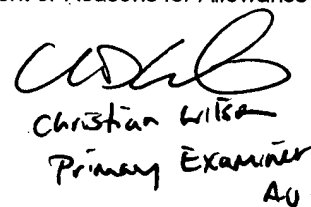 ent of Reasons for Allowance
Christian Wilson
Primary Examiner
AU